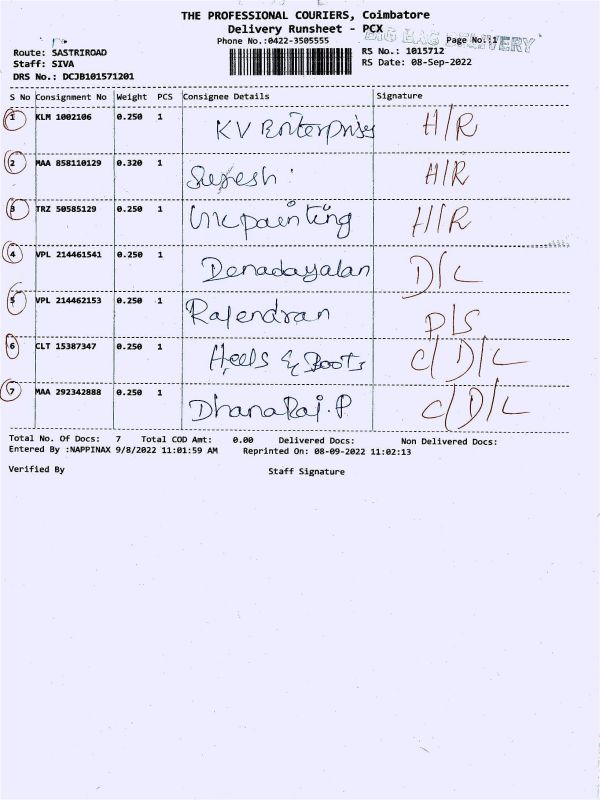 THE PROFESSIONAL COURIERS, Coimbatore
Delivery Runsheet - PCX
BIG BAG DELIVERY
Phone No.:0422-3505555 Page No.:1
Route: SASTRIROAD RS No.: 1015712
Staff: SIVA RS Date: 08-Sep-2022
DRS No.: DCJB101571201
S No Consignment No Weight PCS Consignee Details Signature
1 KLM 1002106 0.250 1 KV Enterprises H/R
2 MAA 858110129 0.320 1 Suresh H/R
3 TRZ 50585129 0.250 1 painting H/R
4 VPL 214461541 0.250 1 Denadayalan D/L
5 VPL 214462153 0.250 1 Rajendran P/S
6 CLT 15387347 0.250 1 Heels & Boots C/D/L
7 MAA 292342888 0.250 1 DhanaRaj.P C/D/L
Total No. Of Docs: 7 Total COD Amt: 0.00 Delivered Docs: Non Delivered Docs:
Entered By :NAPPINAX 9/8/2022 11:01:59 AM Reprinted On: 08-09-2022 11:02:13
Verified By Staff Signature